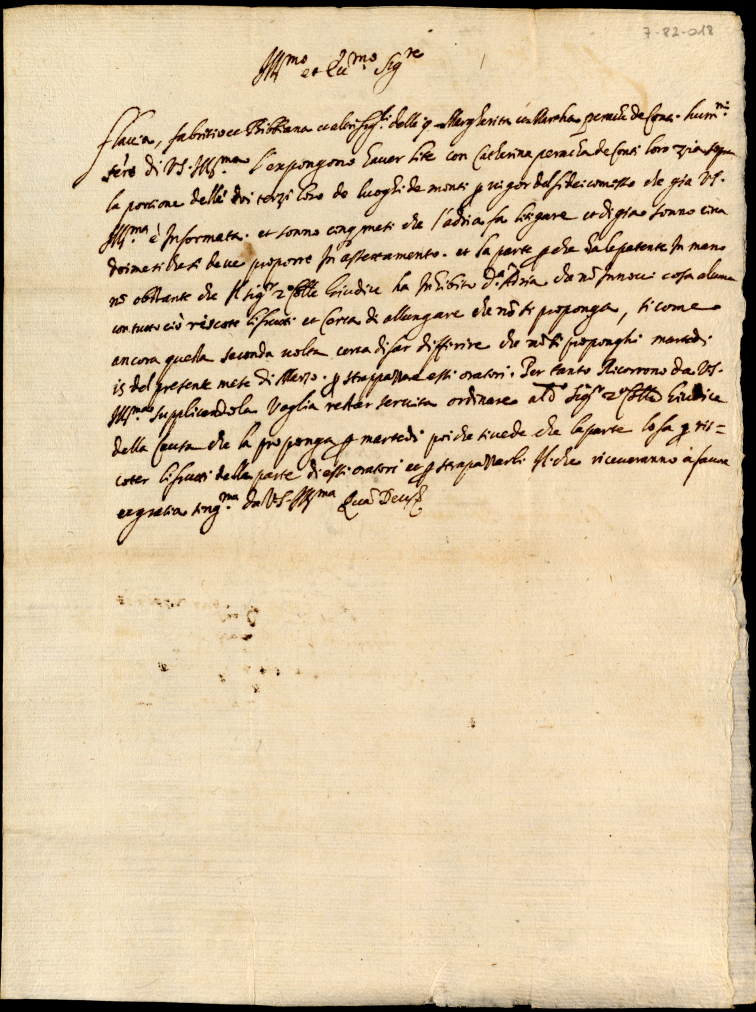 7-82-018
Ill^mo et Ecc^mo Sig^re
Flavia, fabritio et Bibbiana et altri figli delle q. Margherita et Martha de Conti hum^mi
ser^e di VS. Ill^ma l'expongono haver lite con Catherina de Conti loro zia sopra
la portione delle doi terzi loro de luoghi de monti p vigor del fideicomisso che gia VS.
Ill^ma è Informata. et sonno cinq mesi che l'adria fa litigare et di gia sonno circa
doi mesi che si deve proporre In assettamento. et la parte p che ha le patente In mano
nō obstante che Il sig^r 2° Coll^e Giudice ha Inhibito d^a Adria che nō Innovi cosa alcuna
con tutto ciò riscote li frutti et Cerca di allungare che nō si proponga, si come
ancora questa seconda volta cerca di far differire che nō si proponghi martedi
15 del presente mese di Marzo. p strappazzare essi oratori. Per tanto Ricorrono da VS.
Ill^ma supplicandola Voglia restar servita ordinare al d° Sig^r 2° Coll^e Giudice
della Causa che la proponga p martedi poiche si vede che la parte lo fa p ris=
coter li frutti della parte di essi oratori et p strapazzarli Il che riceveranno à favore
et gratia da VS. Ill^ma Quā Deus